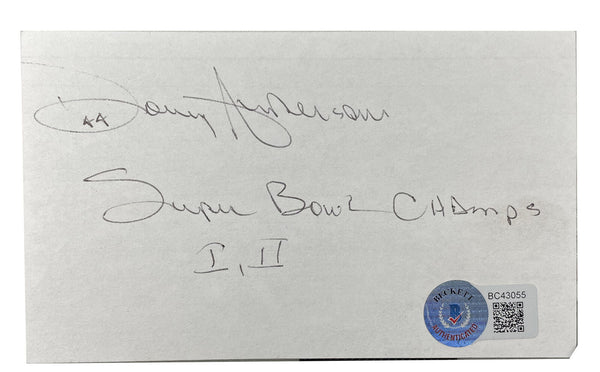 Donny Anderson
44
Super Bowl Champs
I, II
BECKETT
B
AUTHENTICATED
BC43055